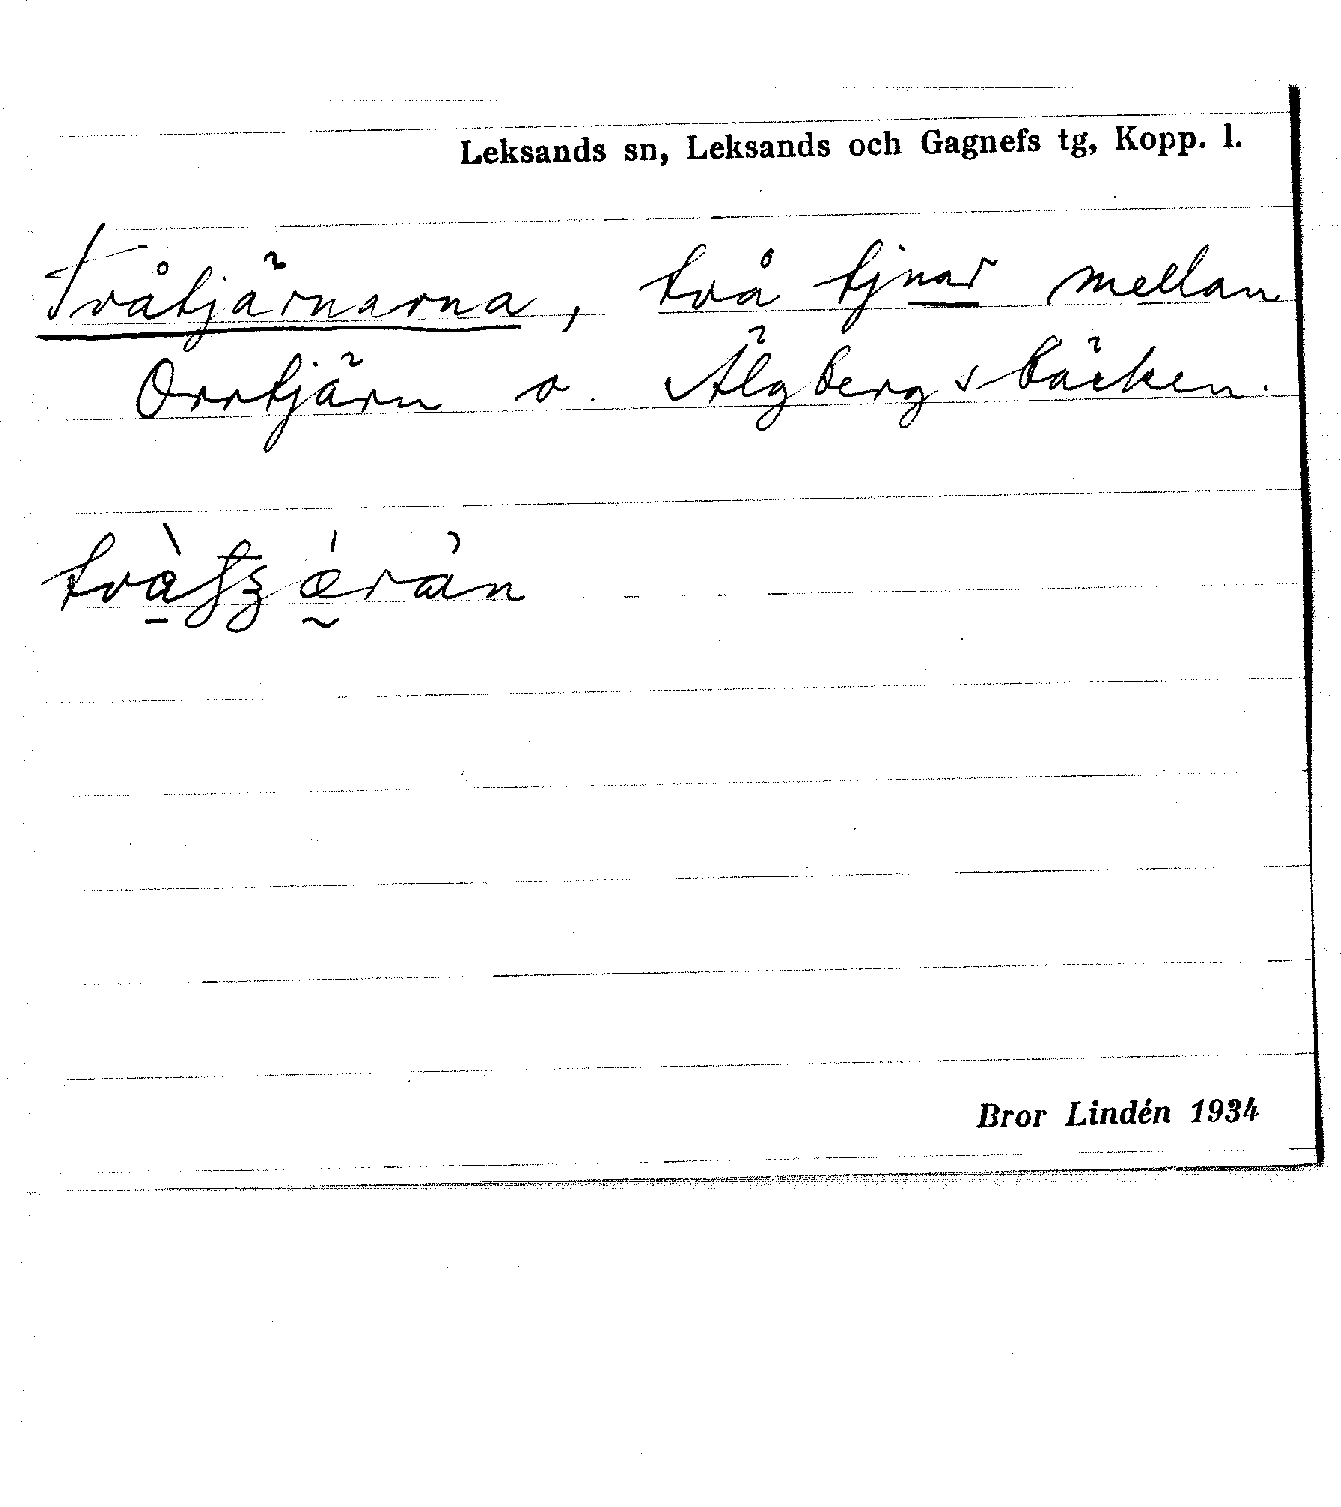 Leksands sn, Leksands och Gagnefs tg, Kopp. l.
Tvåtjärnarna, två tjnar mellan
Orrtjärn o. Älgbergsbäcken.
Bror Lindén 1934